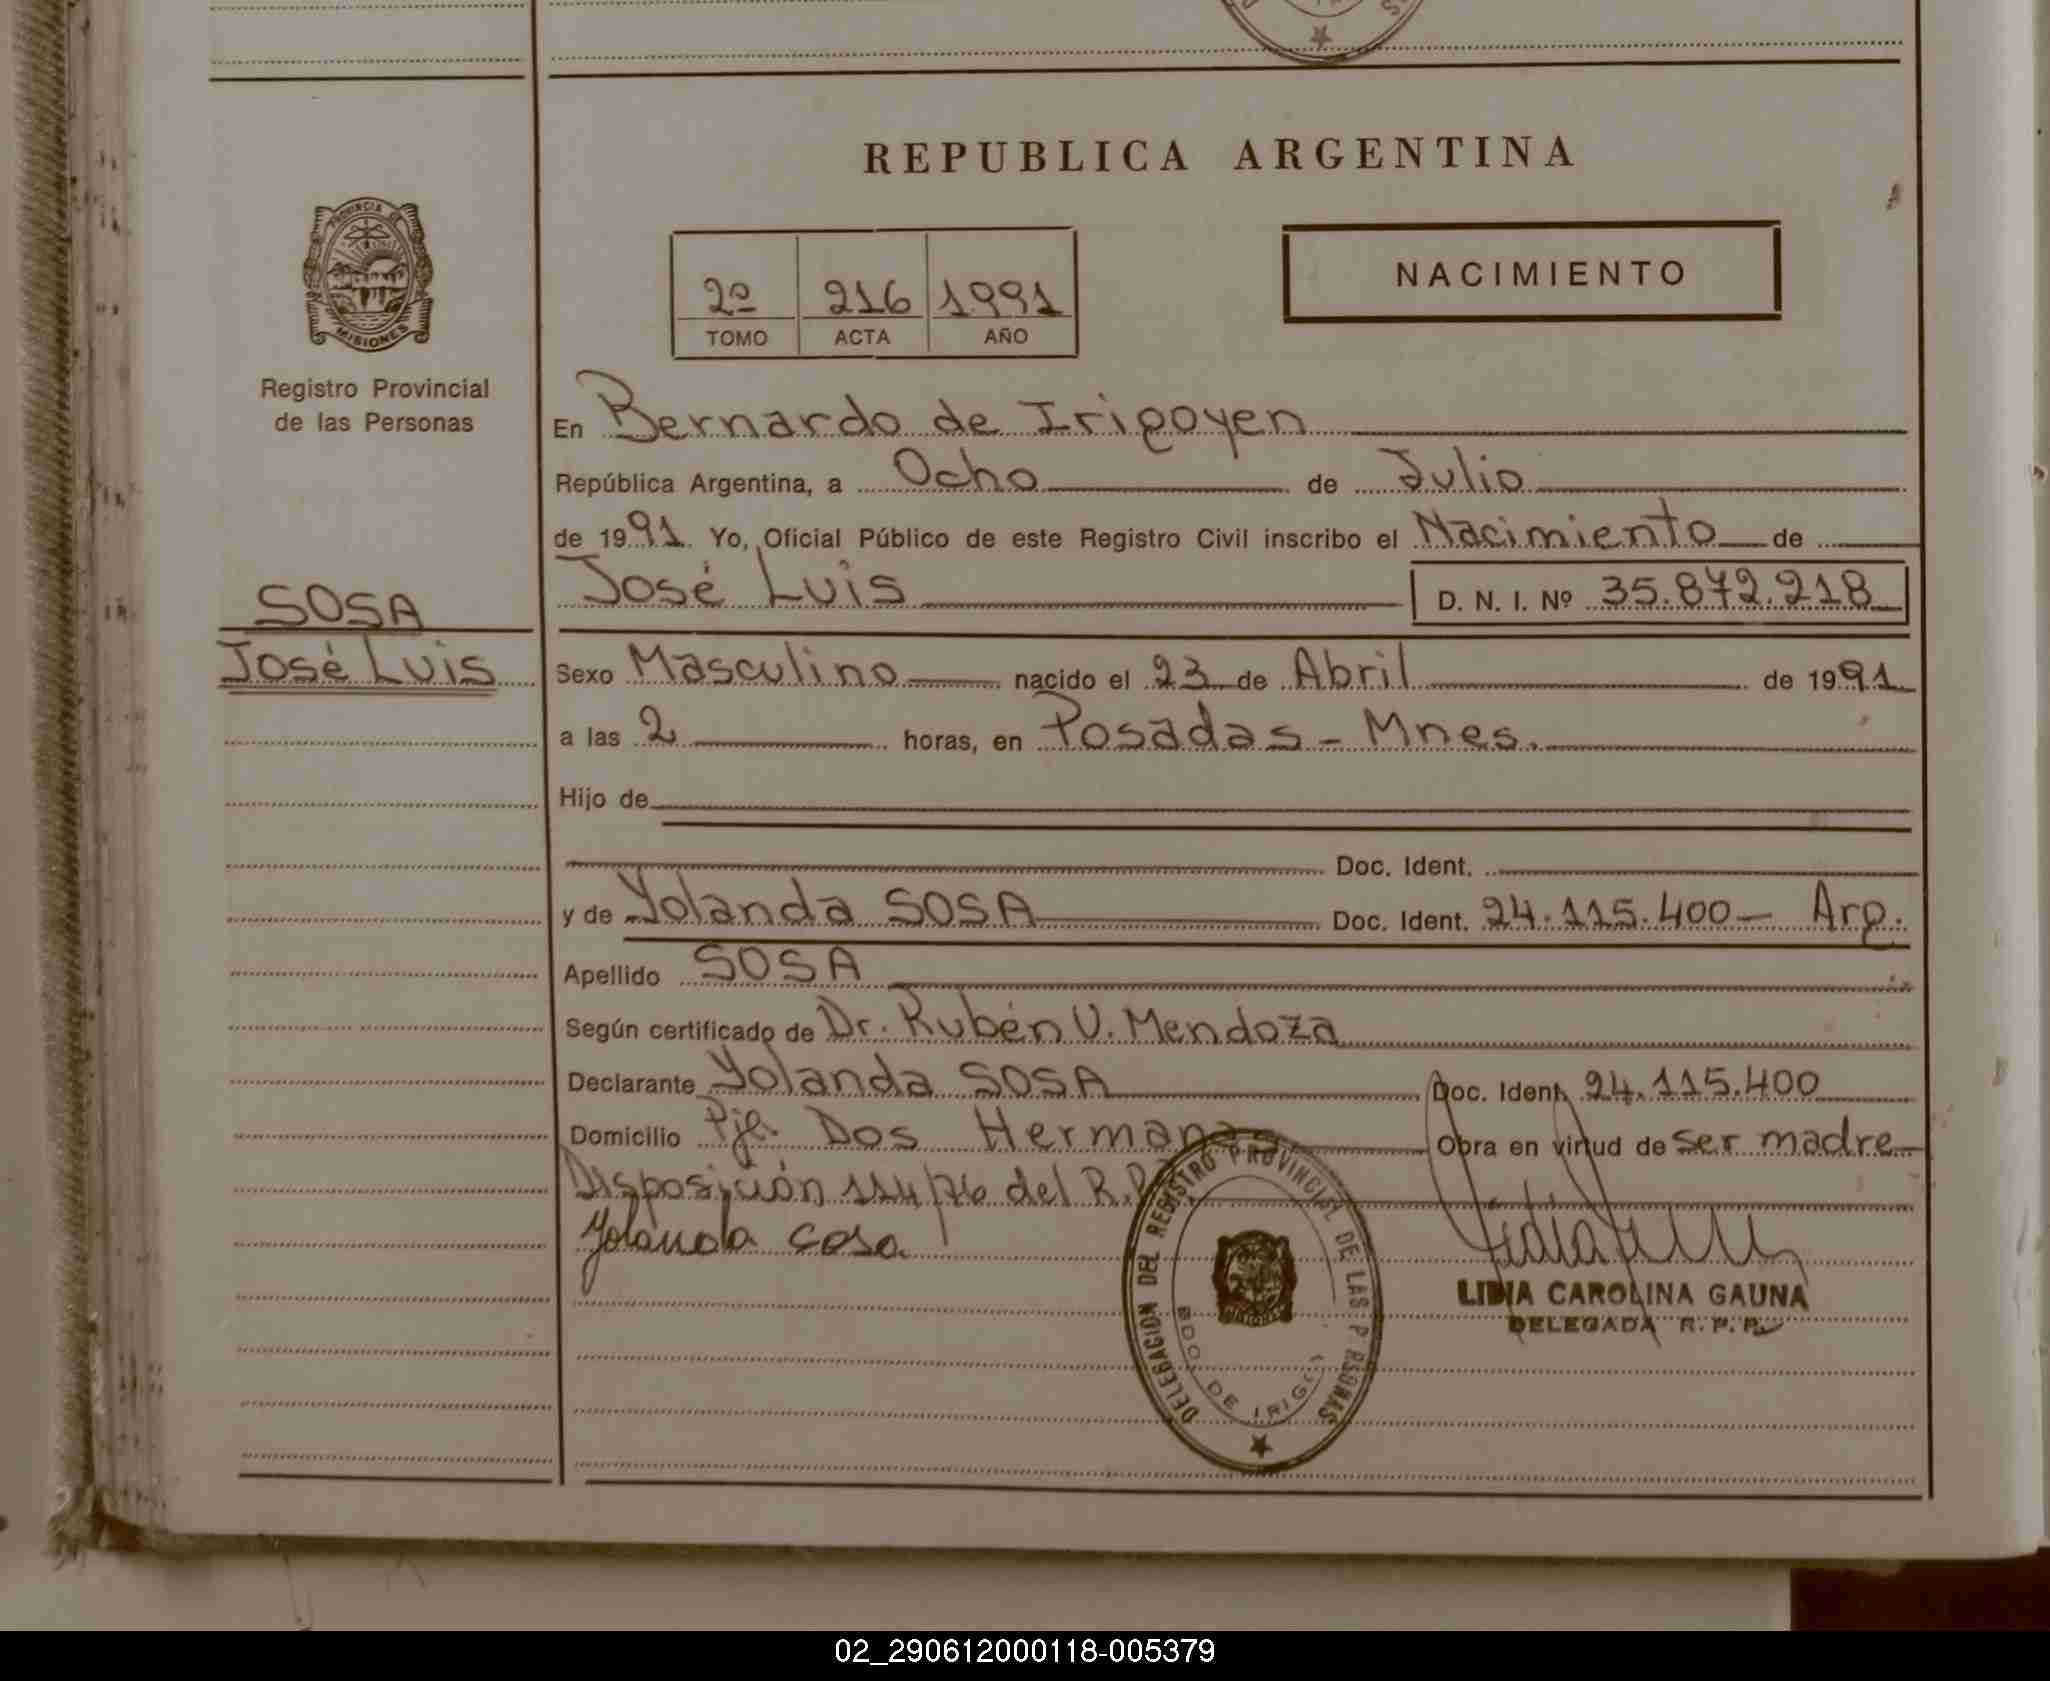 REPUBLICA ARGENTINA
PROVINCIA DE
MISIONES
Registro Provincial
de las Personas
2º 216 1991
TOMO ACTA AÑO
NACIMIENTO
En Bernardo de Irigoyen
República Argentina, a Ocho de Julio
de 1991. Yo, Oficial Público de este Registro Civil inscribo el Nacimiento de
José Luis D. N. I. Nº 35.872.218
SOSA
José Luis
Sexo Masculino nacido el 23 de Abril de 1991
a las 2 horas, en Posadas - Mnes.
Hijo de
Doc. Ident.
y de Yolanda SOSA Doc. Ident. 24.115.400 - Arg.
Apellido SOSA
Según certificado de Dr. Rubén V. Mendoza
Declarante Yolanda SOSA Doc. Ident. 24.115.400
Domicilio Pje. Dos Hermanas Obra en virtud de ser madre
Disposición 114/76 del R.P.
Yolanda Cosa
DELEGACION DEL REGISTRO PROVINCIAL DE LAS P RSONAS
BDO. DE IRIGO
LIDIA CAROLINA GAUNA
DELEGADA R.P.P.
02_290612000118-005379